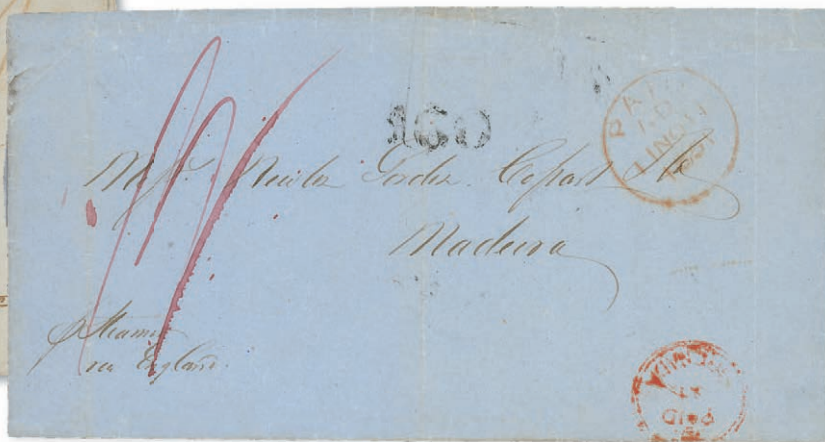 160
PAID
Messrs. Newton Gordon Cossart & Co
Madeira
p Steamer
via England.
PAID